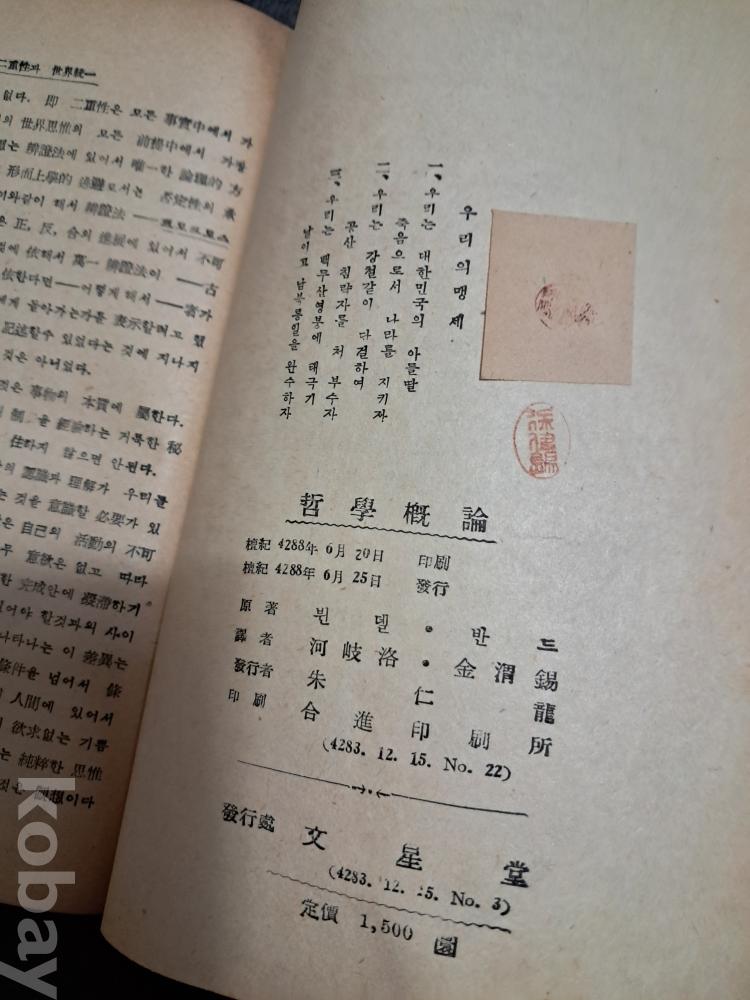 二重性과 世界統一
없다. 即 二重性은 모든 事實中에서 가
의 世界思惟의 모든 前提中에서 가장
는 辨證法에 있어서 唯一한 論理的 方
形而上學的 過避로서는 否定性의 承
이와같이 해서 辨證法
은 正, 反, 合의 進展에 있어서 不可
것에 依해서 萬一 辨證法이 ——古
依한다면——어떻게 해서——者가
에게 돌아가는가를 表示할려고 했
記述할수 있었다는 것에 지나지
것은 아니었다.
것은 事物의 本質에 屬한다.
制 을 經論하는 거룩한 秘
住하지 않으면 안된다.
의 認識과 理解가 우리를
는 것을 意識할 必要가 있
은 自己의 活動의 不可
무 意欲은 없고 따라
한 完成안에 凝滯하기
있어야 할것과의 사이
나타나는 이 差異는
條件을 넘어서 條
人間에 있어서
의 欲求없는 기쁨
는 純粹한 思惟
것은 觀想이다
우리의맹세
一、우리는 대한민국의 아들딸
죽음으로서 나라를 지키자
二、우리는 강철같이 단결하여
공산 침략자를 처 부수자
三、우리는 백두산영봉에 태극기
날이고 남북통일을 완수하자
哲學概論
檀紀 4288年 6月 20日 印刷
檀紀 4288年 6月 25日 發行
原著 빈델・반드
譯者 河岐洛・金渭錫
發行者 朱仁龍
印刷 合進印刷所
(4283. 12. 15. No. 22)
發行處 文星堂
(4283. 12. 15. No. 3)
定價 1,500 圜
kobay